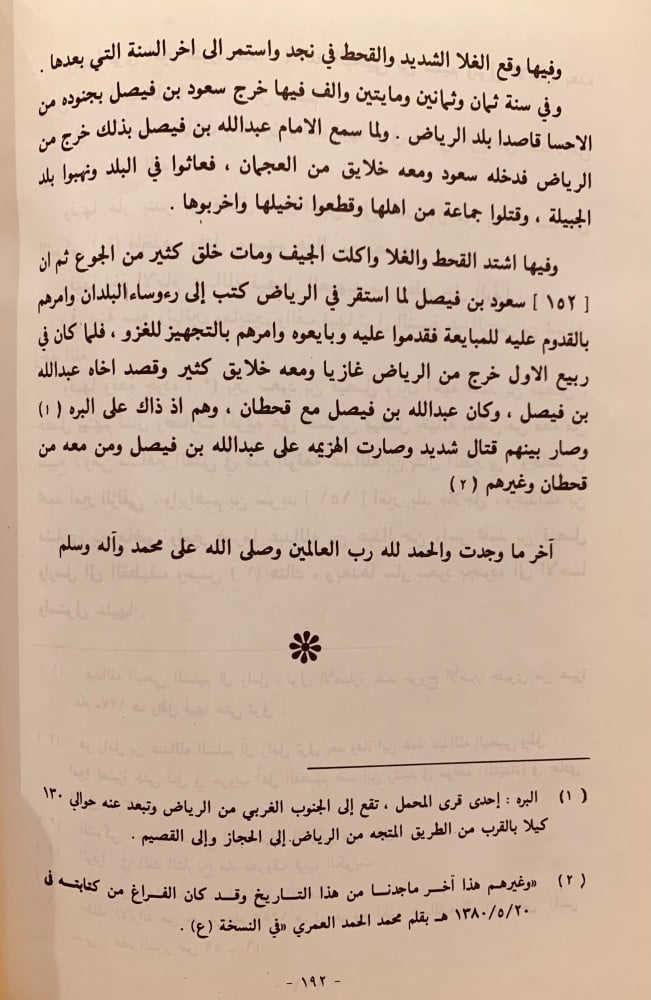 وفيها وقع الغلا الشديد والقحط في نجد واستمر الى اخر السنة التي بعدها .
وفي سنة ثمان وثمانين ومايتين والف فيها خرج سعود بن فيصل بجنوده من
الاحسا قاصدا بلد الرياض . ولما سمع الامام عبدالله بن فيصل بذلك خرج من
الرياض فدخله سعود ومعه خلايق من العجمان ، فعاثوا في البلد ونهبوا بلد
الجبيلة ، وقتلوا جماعة من اهلها وقطعوا نخيلها واخربوها .
وفيها اشتد القحط والغلا واكلت الجيف ومات خلق كثير من الجوع ثم ان
[ ١٥٢ ] سعود بن فيصل لما استقر في الرياض كتب إلى رءوساء البلدان وامرهم
بالقدوم عليه للمبايعة فقدموا عليه وبايعوه وامرهم بالتجهيز للغزو ، فلما كان في
ربيع الاول خرج من الرياض غازيا ومعه خلايق كثير وقصد اخاه عبدالله
بن فيصل ، وكان عبدالله بن فيصل مع قحطان ، وهم اذ ذاك على البره ( ١ )
وصار بينهم قتال شديد وصارت الهزيمه على عبدالله بن فيصل ومن معه من
قحطان وغيرهم ( ٢ )
آخر ما وجدت والحمد لله رب العالمين وصلى الله على محمد وآله وسلم
( ١ ) البره : إحدى قرى المحمل ، تقع إلى الجنوب الغربي من الرياض وتبعد عنه حوالي ١٣٠
كيلا بالقرب من الطريق المتجه من الرياض إلى الحجاز وإلى القصيم .
( ٢ ) «وغيرهم هذا آخر ماجدنا من هذا التاريخ وقد كان الفراغ من كتابته في
١٣٨٠/٥/٢٠ هـ بقلم محمد الحمد العمري «في النسخة (ع) .
- ١٩٢ -